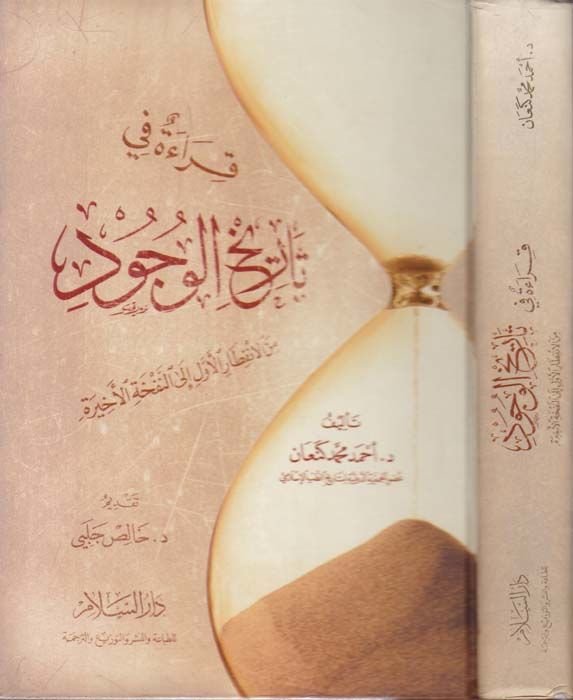 قِرَاءَةٌ فِي
تَارِيخِ الوُجُودِ
مِنَ الانفِطَارِ الأَوَّلِ إِلَى النَّفْخَةِ الأَخِيرَةِ
تَأْلِيفُ
د. أَحْمَد مُحَمَّد كَنْعَان
عضو الجمعية الدولية لتاريخ الطب الإسلامي
تَقْدِيمُ
د. خَالِص جَلَبِي
دَارُ السَّلَامِ
للطباعة والنشر والتوزيع والترجمة
د. أَحْمَد مُحَمَّد كَنْعَان
قِرَاءَةٌ فِي
تَارِيخِ الوُجُودِ
مِنَ الانفِطَارِ الأَوَّلِ إِلَى النَّفْخَةِ الأَخِيرَةِ
دَارُ السَّلَامِ
للطباعة والنشر والتوزيع والترجمة